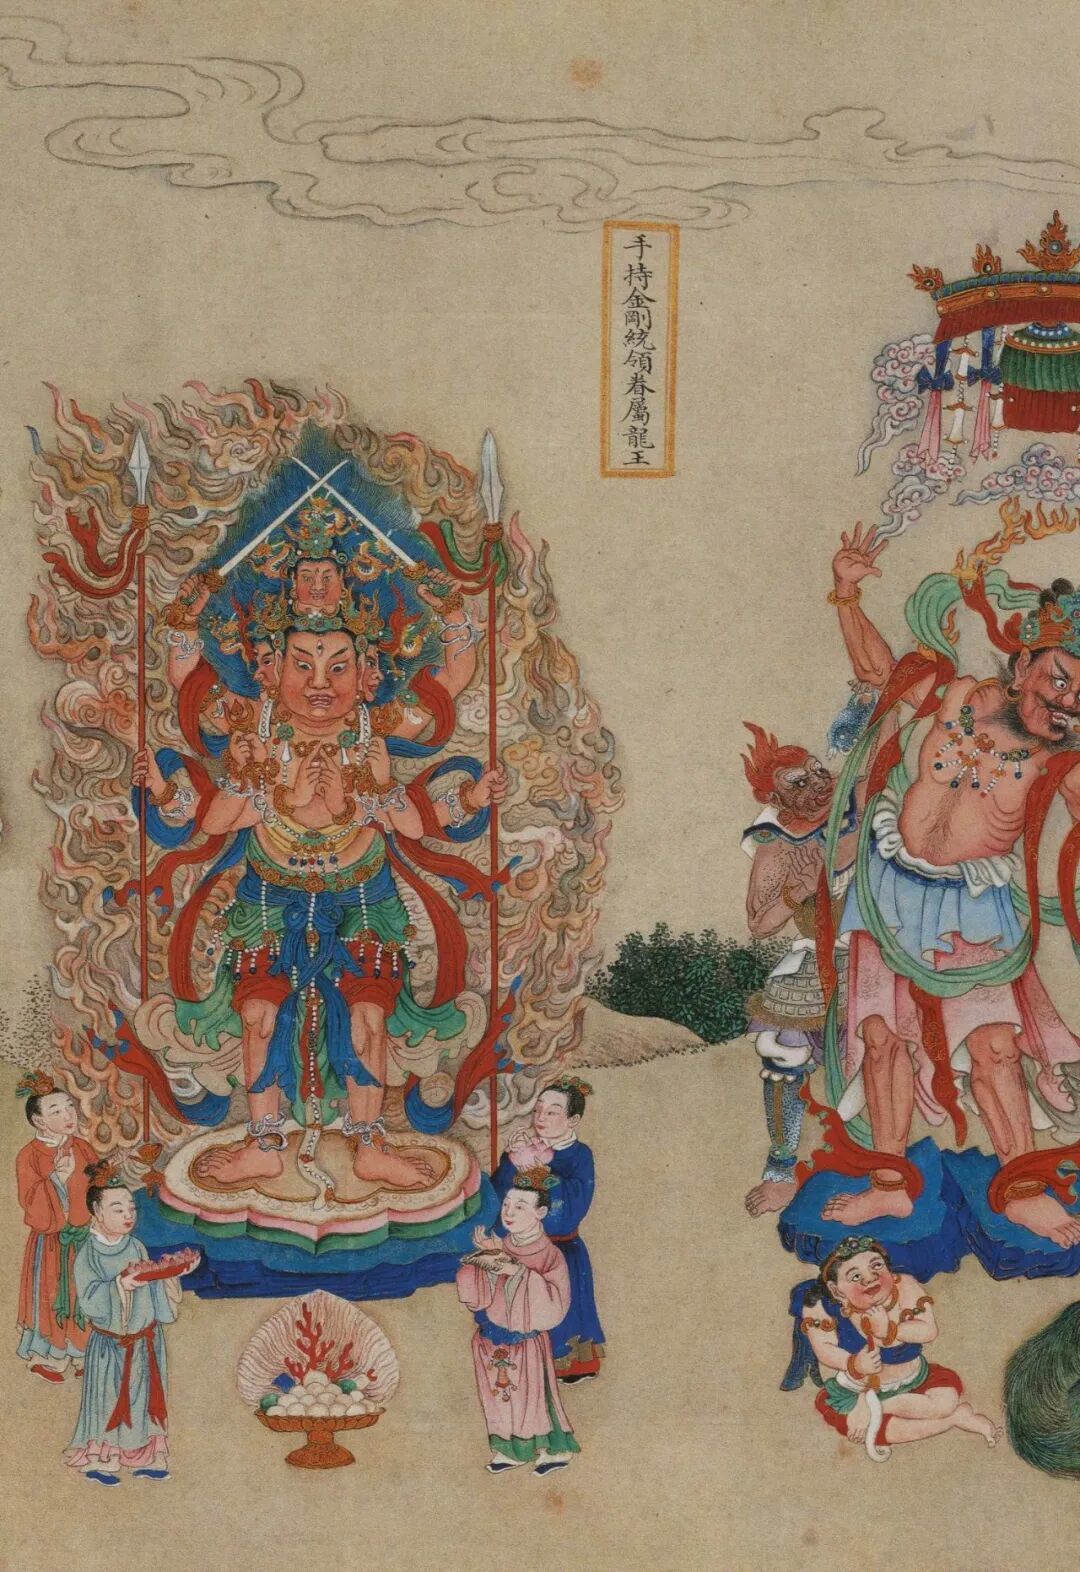 手持金剛統領眷屬龍王